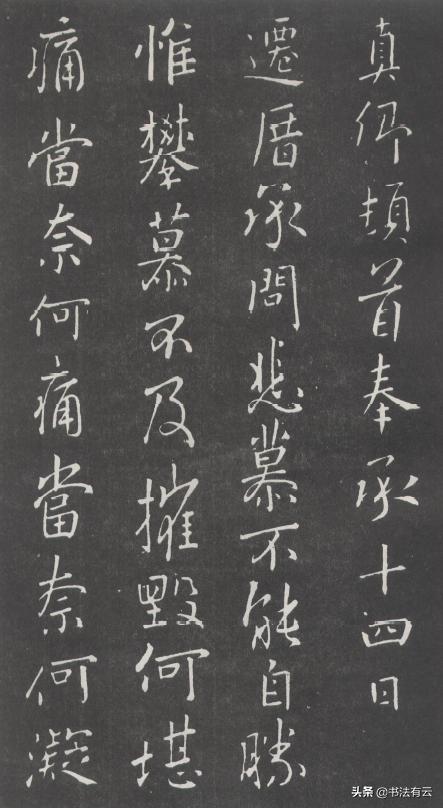 真卿頓首奉承十四日
遷厝承問悲慕不能自勝
惟攀慕不及摧毀何堪
痛當奈何痛當奈何凝
头条 @书法有云